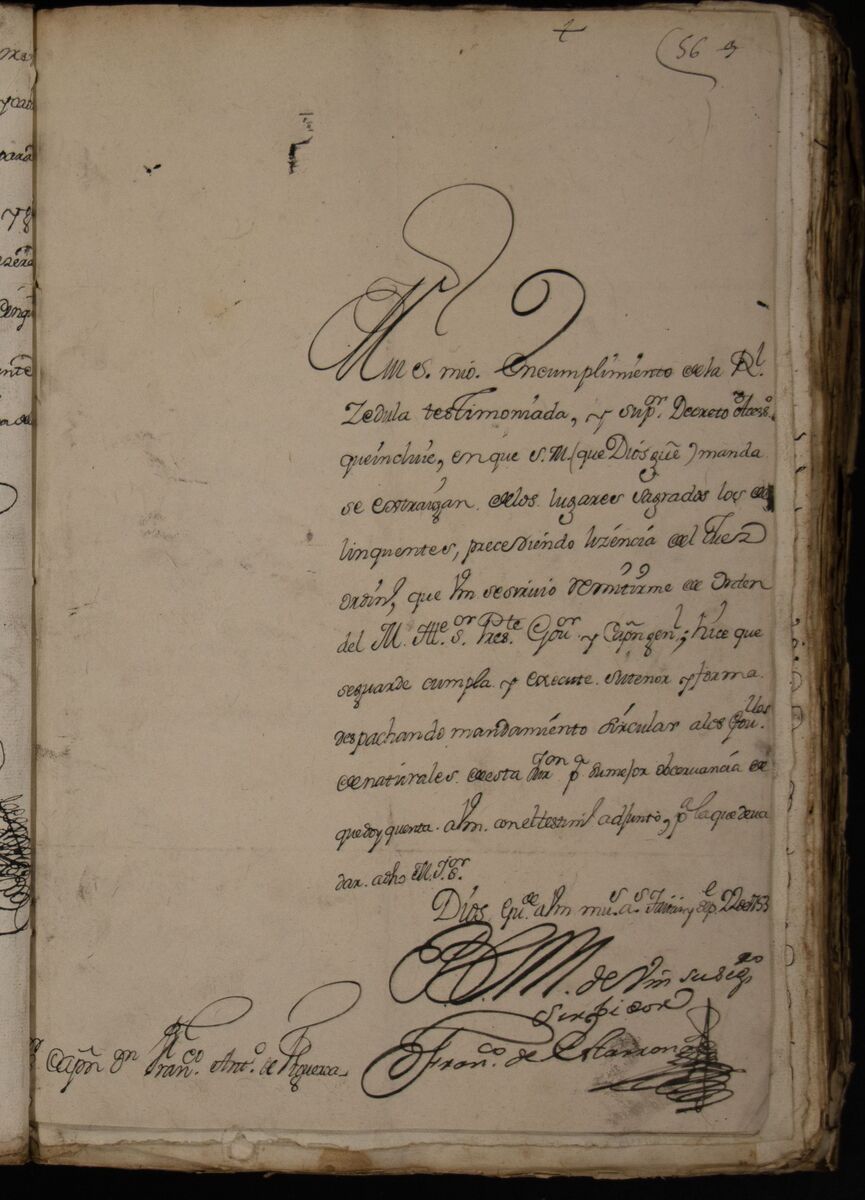 56
Mui S. mio. En cumplimiento de la Rl.
Zedula testimoniada, y supor. Decreto
que incluie, en que S. M. (que Dios gue) manda
se extraigan de los lugares sagrados los de
linquentes, precediendo lizencia del Juez
ordinº, que Vm se sirvio remitirme de orden
del M. Ille. sor. Preste. Gouor. y Capn genl, hize que
se guarde cumpla y execute su tenor y forma
despachando mandamiento sircular a los Gou.llos
de naturales de esta Juron pa su mejor obceruancia de
que doy quenta a Vm. con el testimo adjunto, pa la que deua
dar a dho M. I. Sor.
Dios gude a Vm mus. as. 22 de 1753
B. L. M. de Vm su sego
seruidor
Franco. de
Capn Dn Franco. Anto. de Figueroa